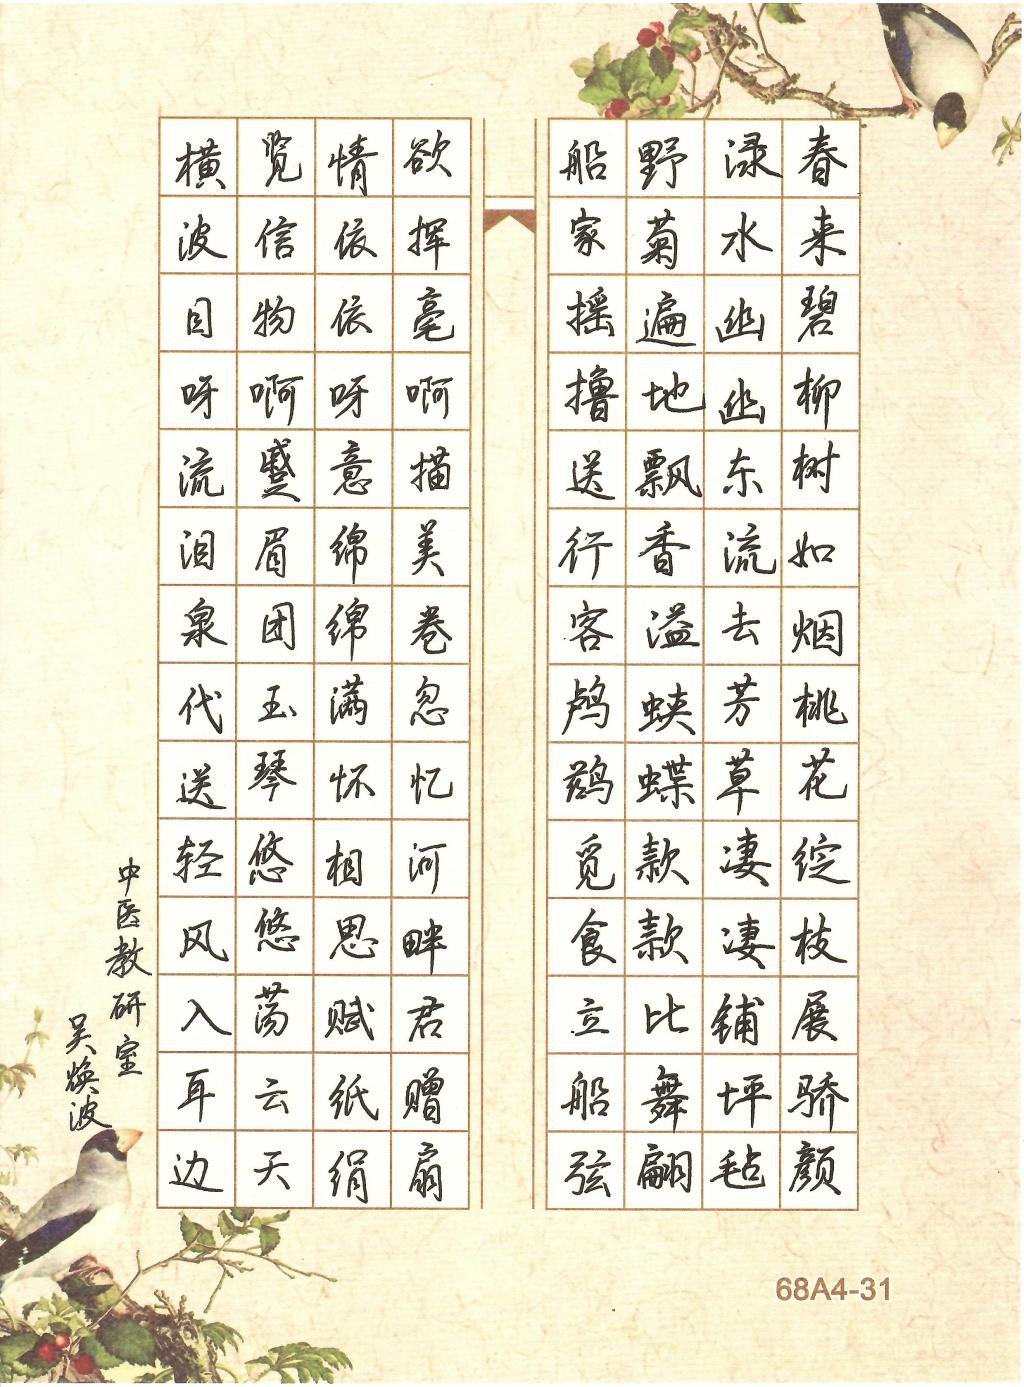 春来碧柳树如烟桃花绽枝展骄颜
渌水幽幽东流去芳草凄凄铺坪毡
野菊遍地飘香溢蛱蝶款款比舞翩
船家摇撸送行客鸬鹚觅食立船弦
欲挥毫啊描美卷忽忆河畔君赠扇
情依依呀意绵绵满怀相思赋纸绢
览信物啊蹙眉团玉琴悠悠荡云天
横波目呀流泪泉代送轻风入耳边
中医教研室
吴焕波
68A4-31